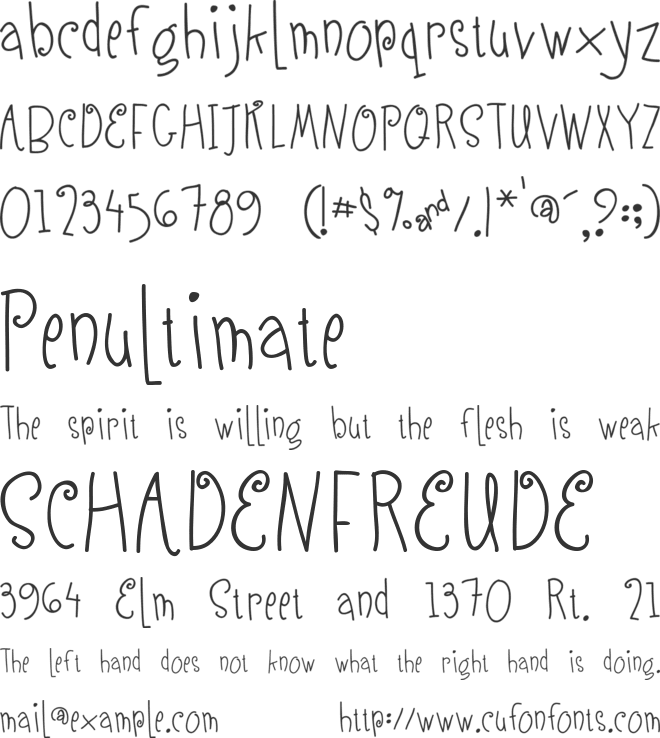 abcdefghijklmnopqrstuvwxyz
ABCDEFGHIJKLMNOPQRSTUVWXYZ
0123456789 (!#$%and/.|*'@´,?:;)
Penultimate
The spirit is willing but the flesh is weak
SCHADENFREUDE
3964 Elm Street and 1370 Rt. 21
The left hand does not know what the right hand is doing.
mail@example.com http://www.cufonfonts.com